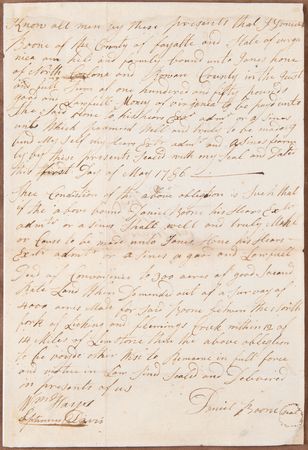 Know all men by these presents that I Daniel
Boone of the County of Fayette and State of virgi
nea am held and firmly bound unto James hone
of North Carolina and Rowan County in the Just
and full Sum of one hundred and fifty pounds
Lawfull Money of vergania to be paid unto
the Said hone his heirs Exr admr or a Sines
unto Which payment Well and truly to be maid I
bind My Self my Heirs Exr admr and a Sines firmly
by these presents Sealed with my Seal and Dated
this first Day of May 1786
The Condition of the above oblegtion is Such that
if the above bound Daniel Boone his Hears Ex
admr or a Sines Shall Well and truly Make
or Cause to be made unto James hone his Hears
Exr admr or a Sines a good and Lawfull
Deed of Conveniance to 300 acres of good
Rate Land When Demanded out of a Survey of
4000 acres Made for Said Boone between the North
fork of Licking and flemings Creek within 12 or
14 Miles of Limstone then the above oblegtion
to be voide other Wise to Remane in full force
and vertue in Law Sind Seald and Delivered
in presents of us
Daniel Boone Seal
Wm Warper
Davis